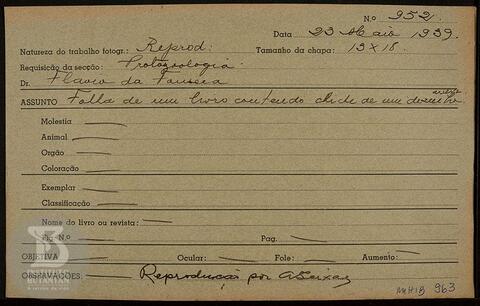 N.o 952
Data 23 Maio 1939.
Natureza do trabalho fotogr.: Reprod: Tamanho da chapa: 13 x 18.
Requisição da secção: Protozoologia
Dr. Flavio da Fonseca
ASSUNTO Folha de um livro contendo de um
Molestia
Animal
Orgão
Coloração
Exemplar
Classificação
Nome do livro ou revista:
Fig. N.o Pag.
OBJETIVA Ocular: Fole: Aumento:
OBSERVAÇÕES: Reproducção por
BUTANTAN
A serviço da vida
MHIB 963